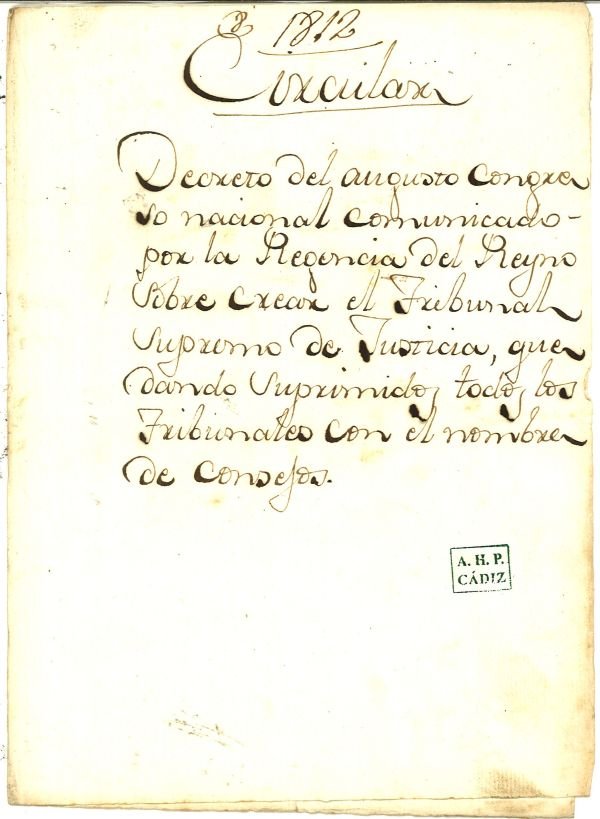 1812
Circular
Decreto del augusto Congre
so nacional comunicado-
por la Regencia del Reyno
sobre crear el Tribunal
Supremo de Justicia, que
dando Suprimidos todos los
Tribunales con el nombre
de Consejos.
A. H. P.
CÁDIZ